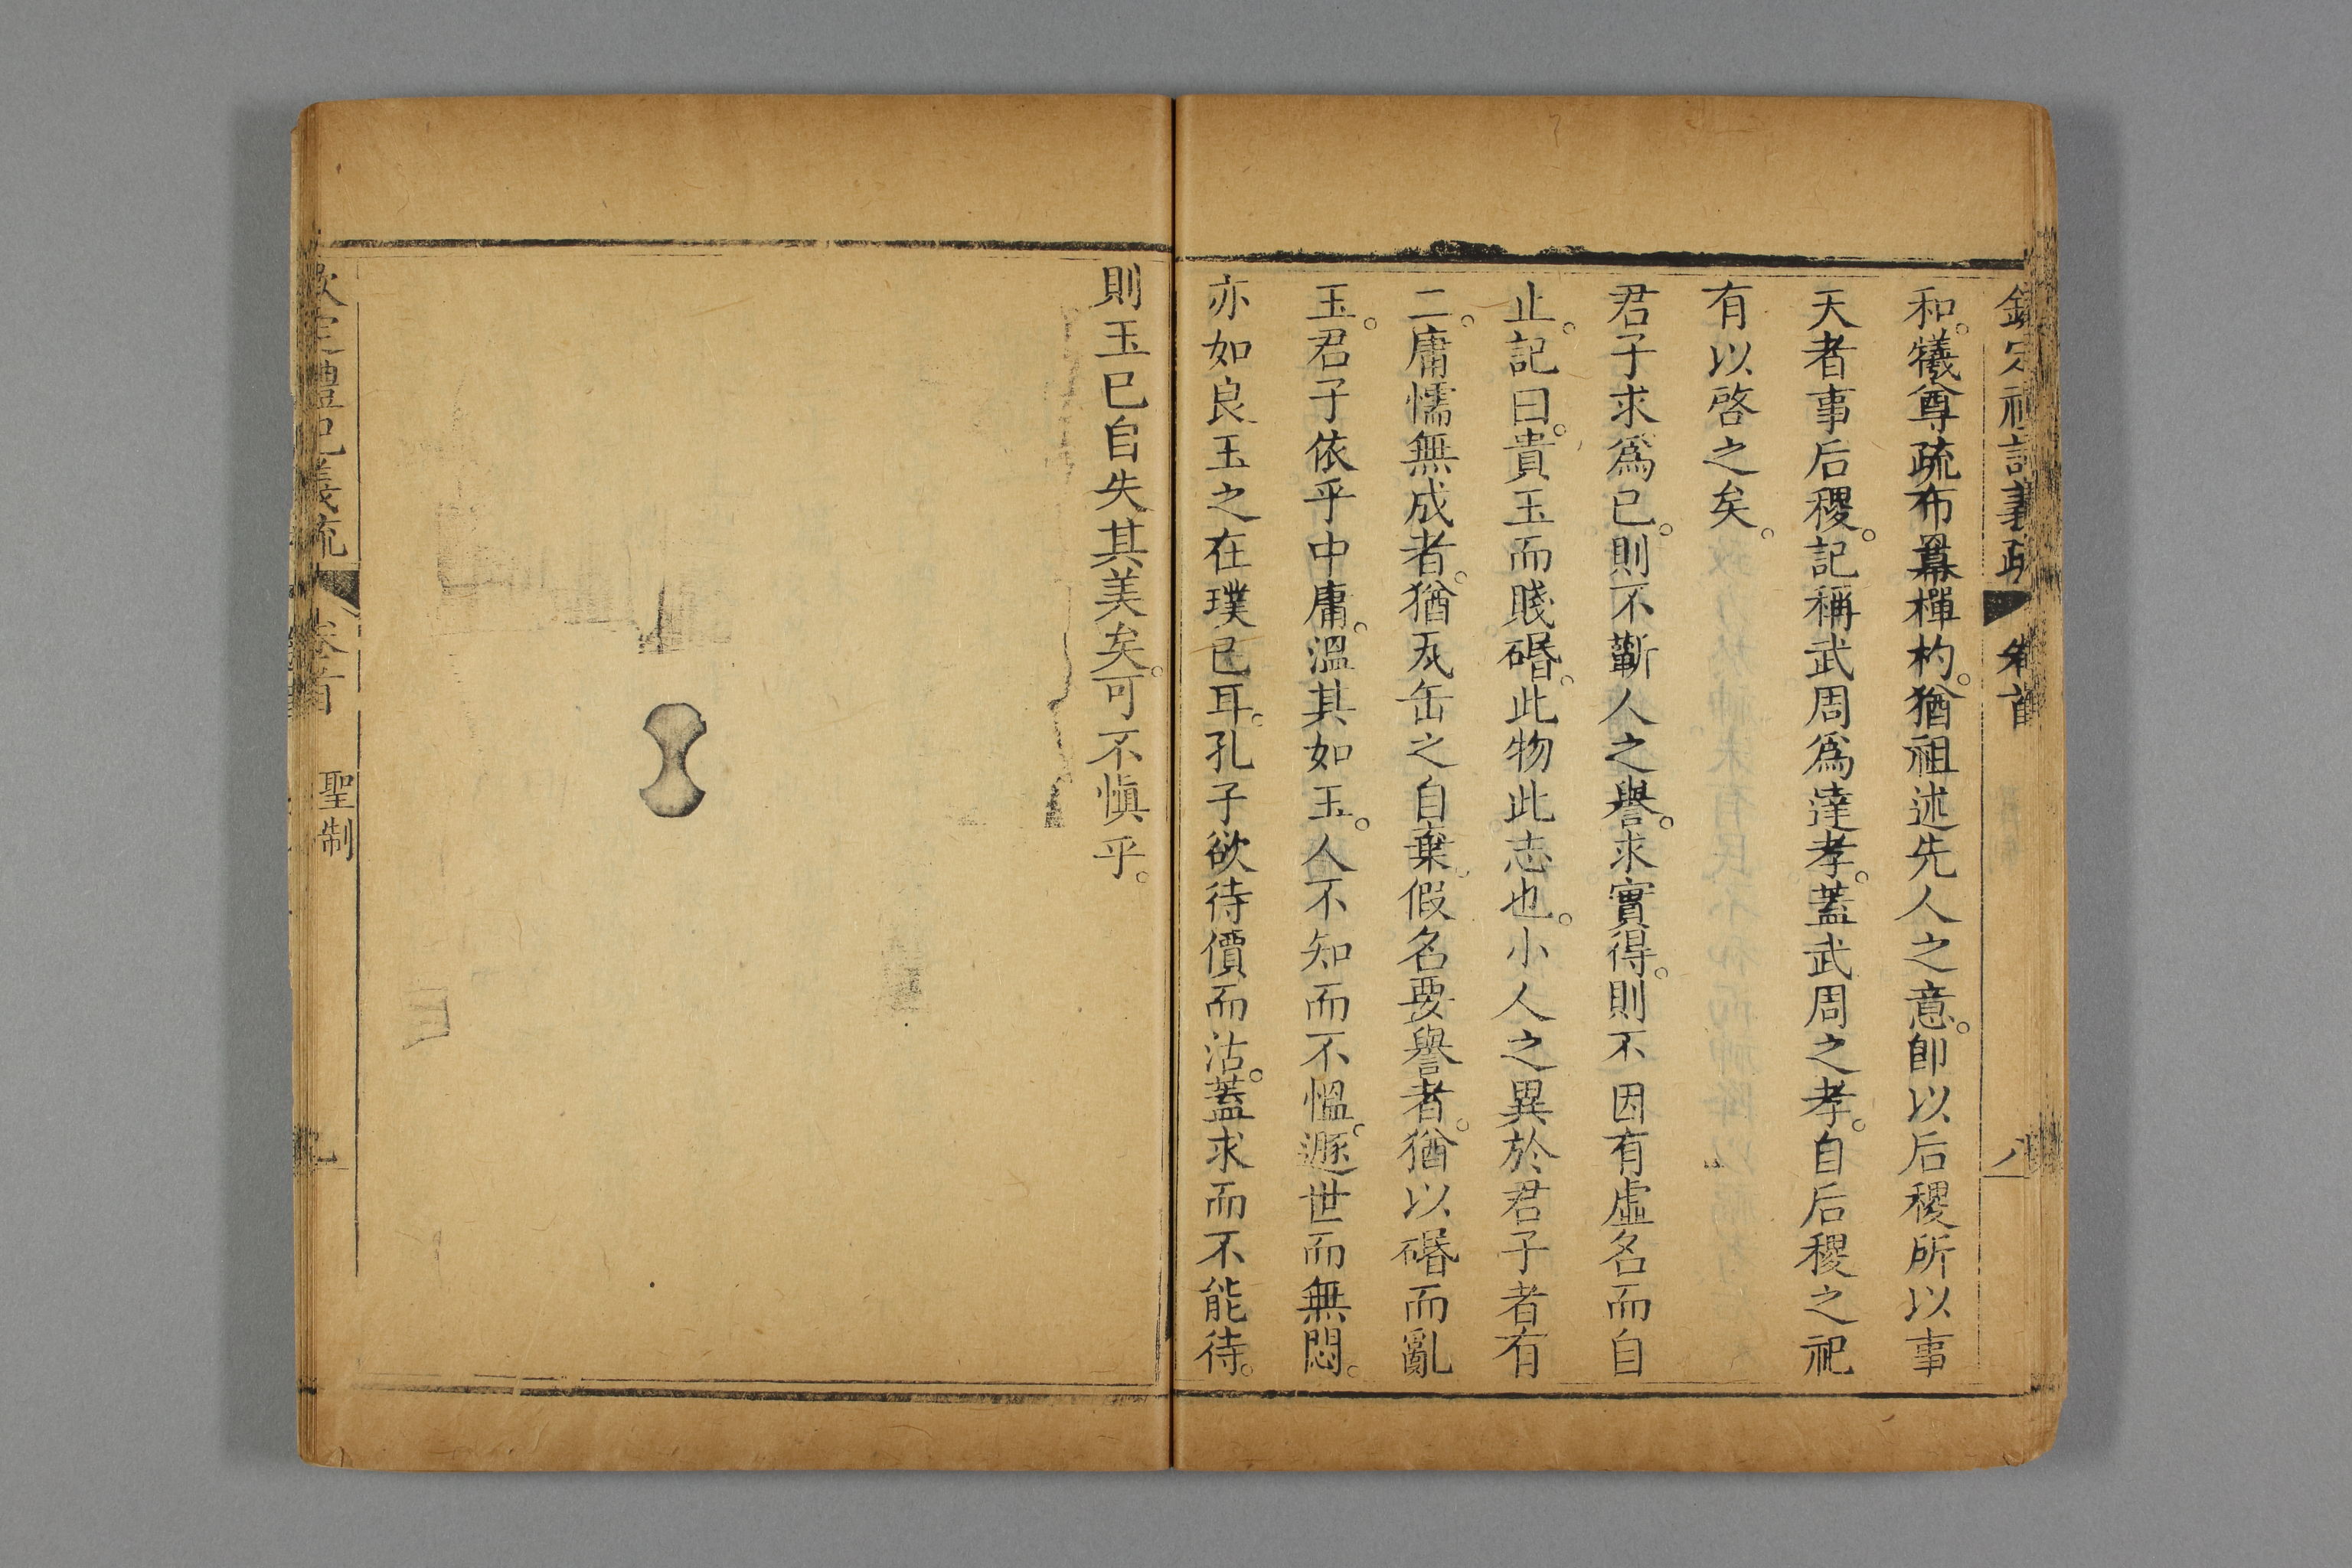 欽定禮記義疏 卷首 八
和。犧尊疏布羃樿杓。猶祖述先人之意。卽以后稷所以事
天者事后稷。記稱武周爲達孝。蓋武周之孝。自后稷之祀
有以啓之矣。
君子求爲已。則不蘄人之譽。求實得。則不因有虛名而自
止。記曰。貴玉而賤碈。此物此志也。小人之異於君子者有
二。庸懦無成者。猶瓦缶之自棄。假名要譽者。猶以碈而亂
玉。君子依乎中庸。溫其如玉。人不知而不慍。遯世而無悶。
亦如良玉之在璞已耳。孔子欲待價而沽。蓋求而不能待。
則玉已自失其美矣。可不愼乎。
欽定禮記義疏 卷首 聖制